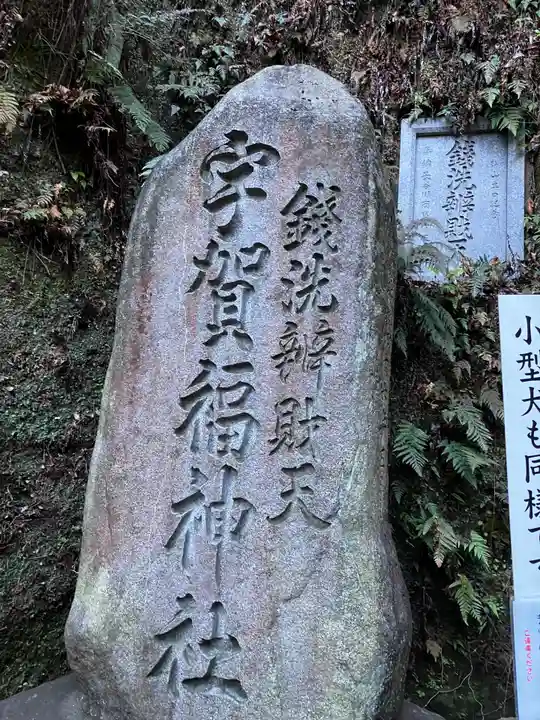 錢洗辨財天
宇賀福神社
錢洗辨財天
小型犬も同様です